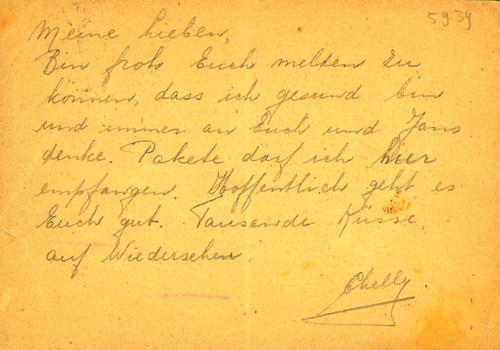 5939
Meine Lieben,
Bin froh Euch melden zu
können, dass ich gesund bin
und immer an Euch und Jans
denke. Pakete darf ich hier
empfangen. Hoffentlich geht es
Euch gut. Tausende Küsse,
auf Wiedersehen.
Chelly